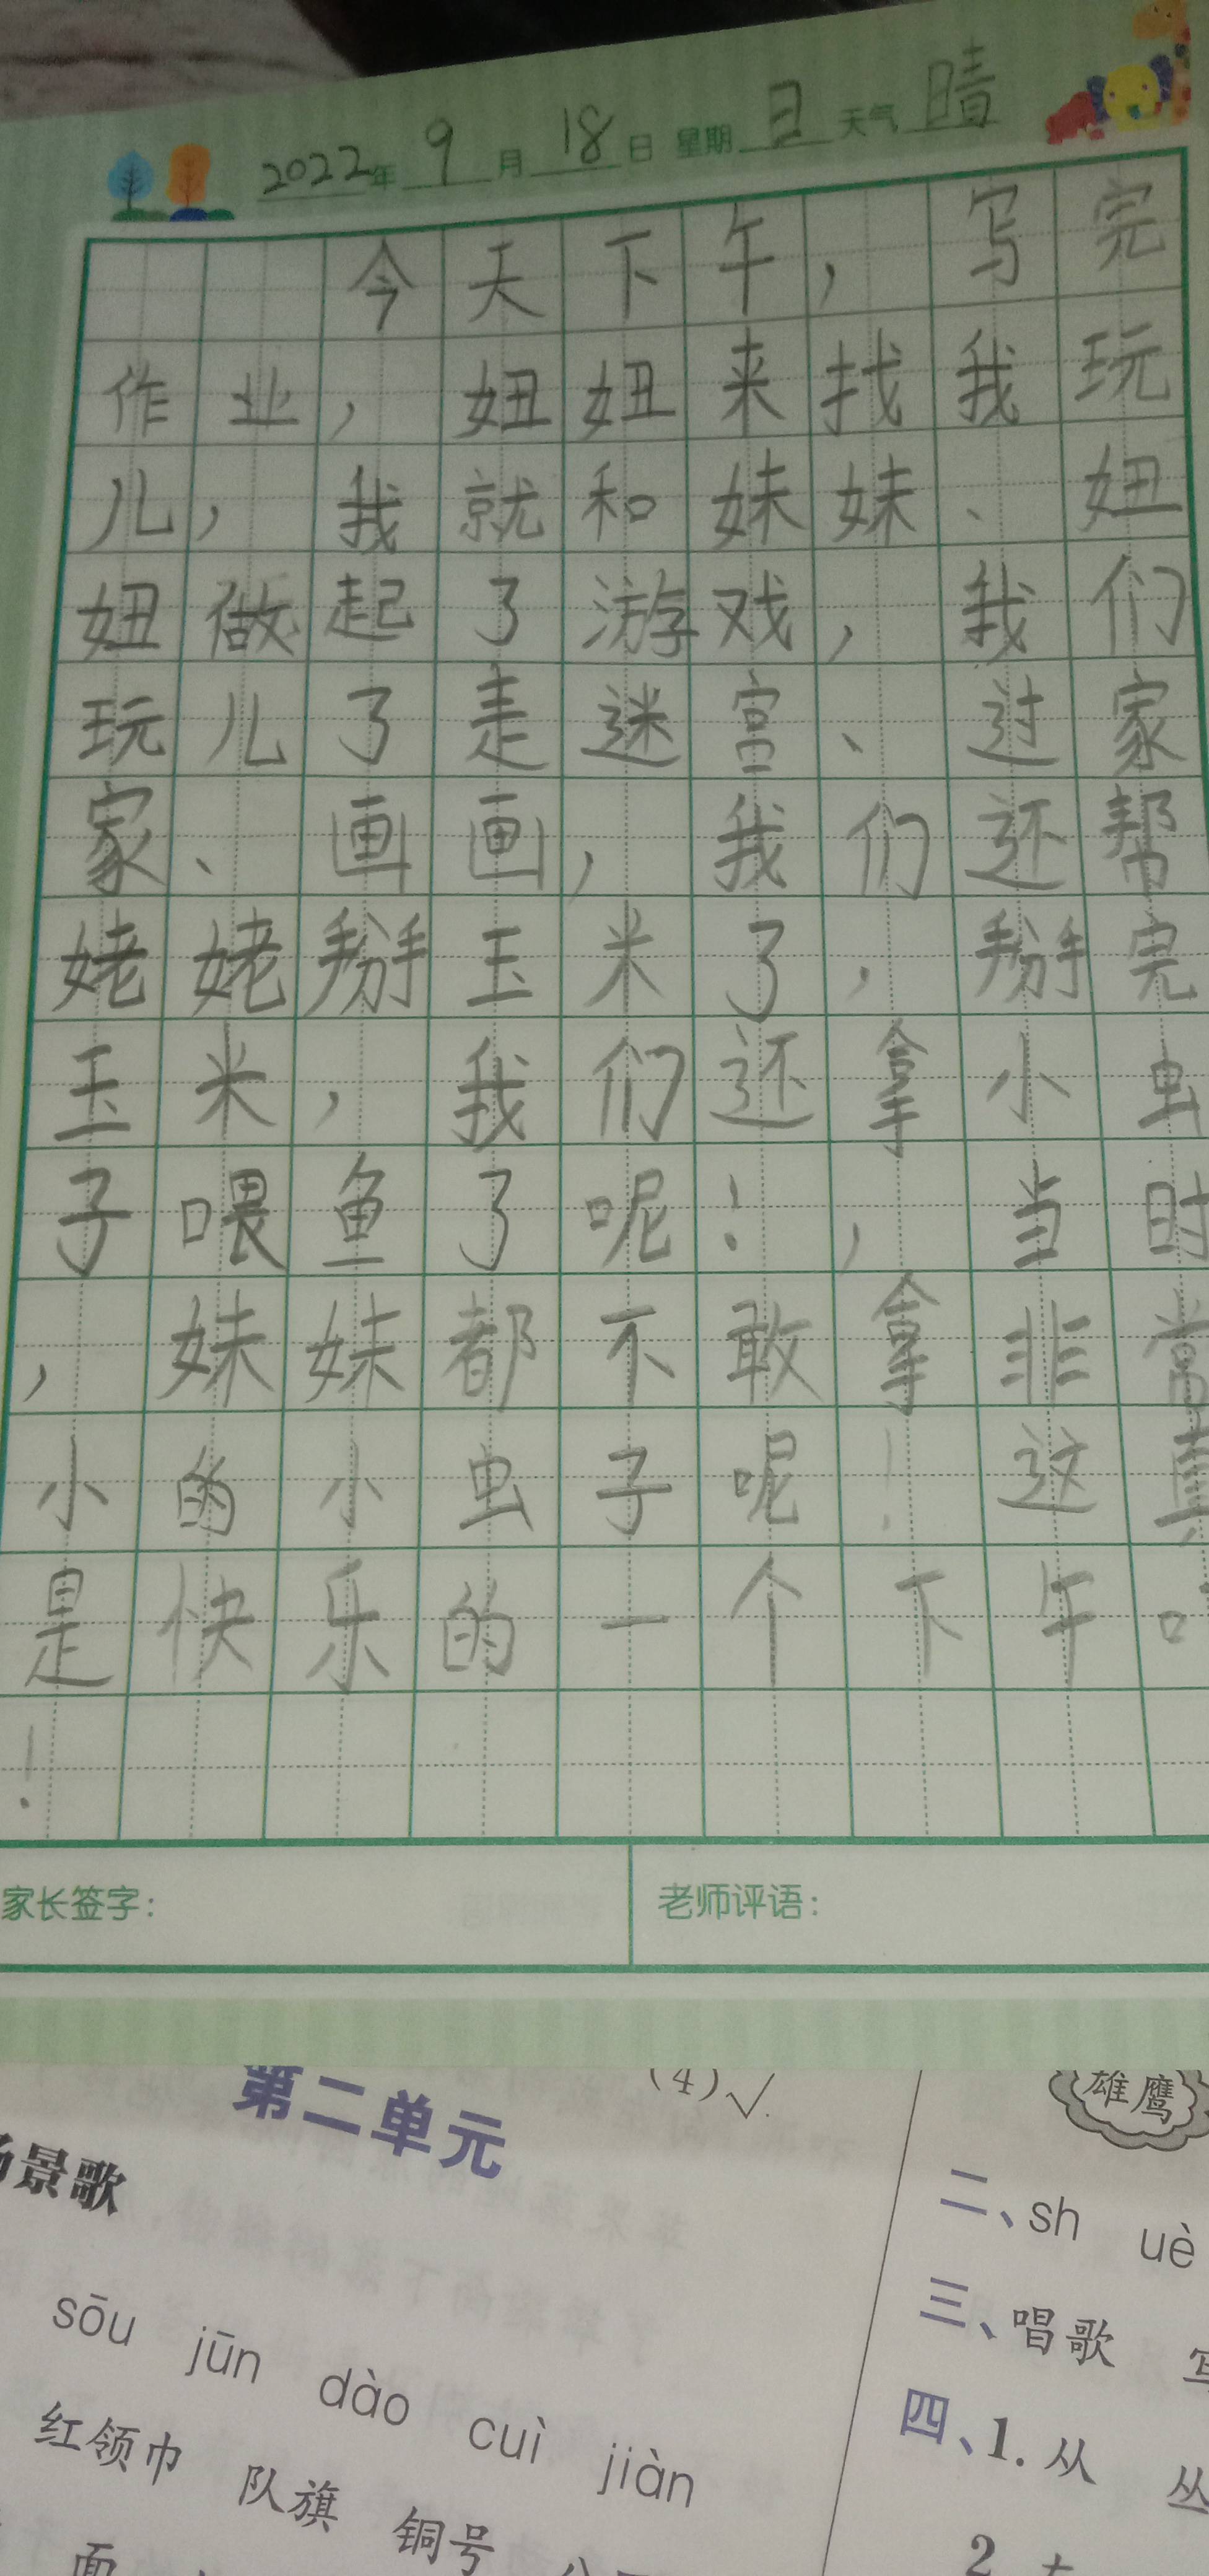 2022年 9 月 18 日 星期 日 天气 晴
今天下午，写完
作业，妞妞来找我玩
儿，我就和妹妹、妞
妞做起了游戏，我们
玩儿了走迷宫、过家
家、画画，我们还帮
姥姥掰玉米了，掰完
玉米，我们还拿小虫
子喂鱼了呢！，当时
，妹妹都不敢拿非常
小的小虫子呢！这真
是快乐的一个下午
！
家长签字：
老师评语：
第二单元
场景歌
sōu jūn dào cuì jiàn
红领巾 队旗 铜号
面
(4)√
雄鹰
二、sh uè
三、唱歌 写
四、1.从 丛
2